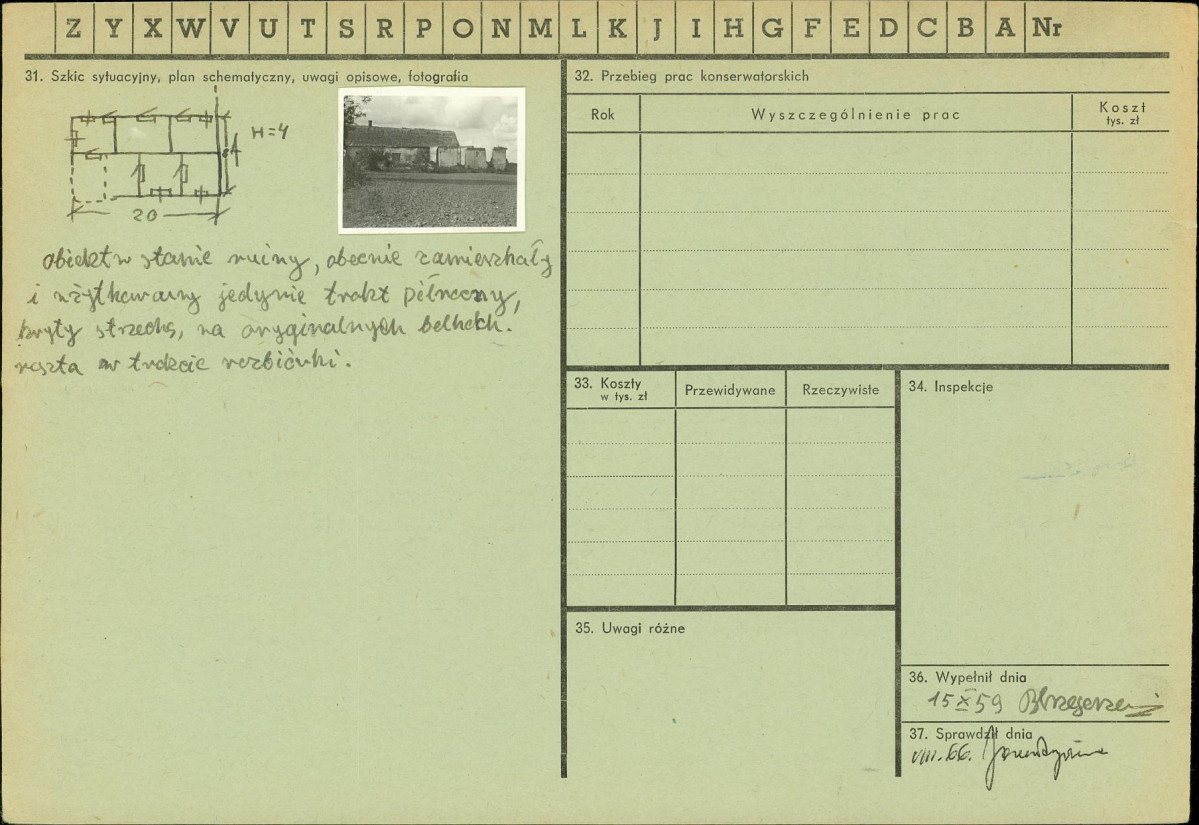 Z Y X W V U T S R P O N M L K J I H G F E D C B A Nr
31. Szkic sytuacyjny, plan schematyczny, uwagi opisowe, fotografia
H=4
20
obiekt w stanie ruiny, obecnie zamieszkały
i użytkowany jedynie trakt północny,
kryty strzechą, na oryginalnych belkach.
reszta w trakcie rozbiórki.
32. Przebieg prac konserwatorskich
Rok
Wyszczególnienie prac
Koszt
tys. zł
33. Koszty
w tys. zł
Przewidywane
Rzeczywiste
34. Inspekcje
35. Uwagi różne
36. Wypełnił dnia
15 X 59
37. Sprawdził dnia
VIII. 66.